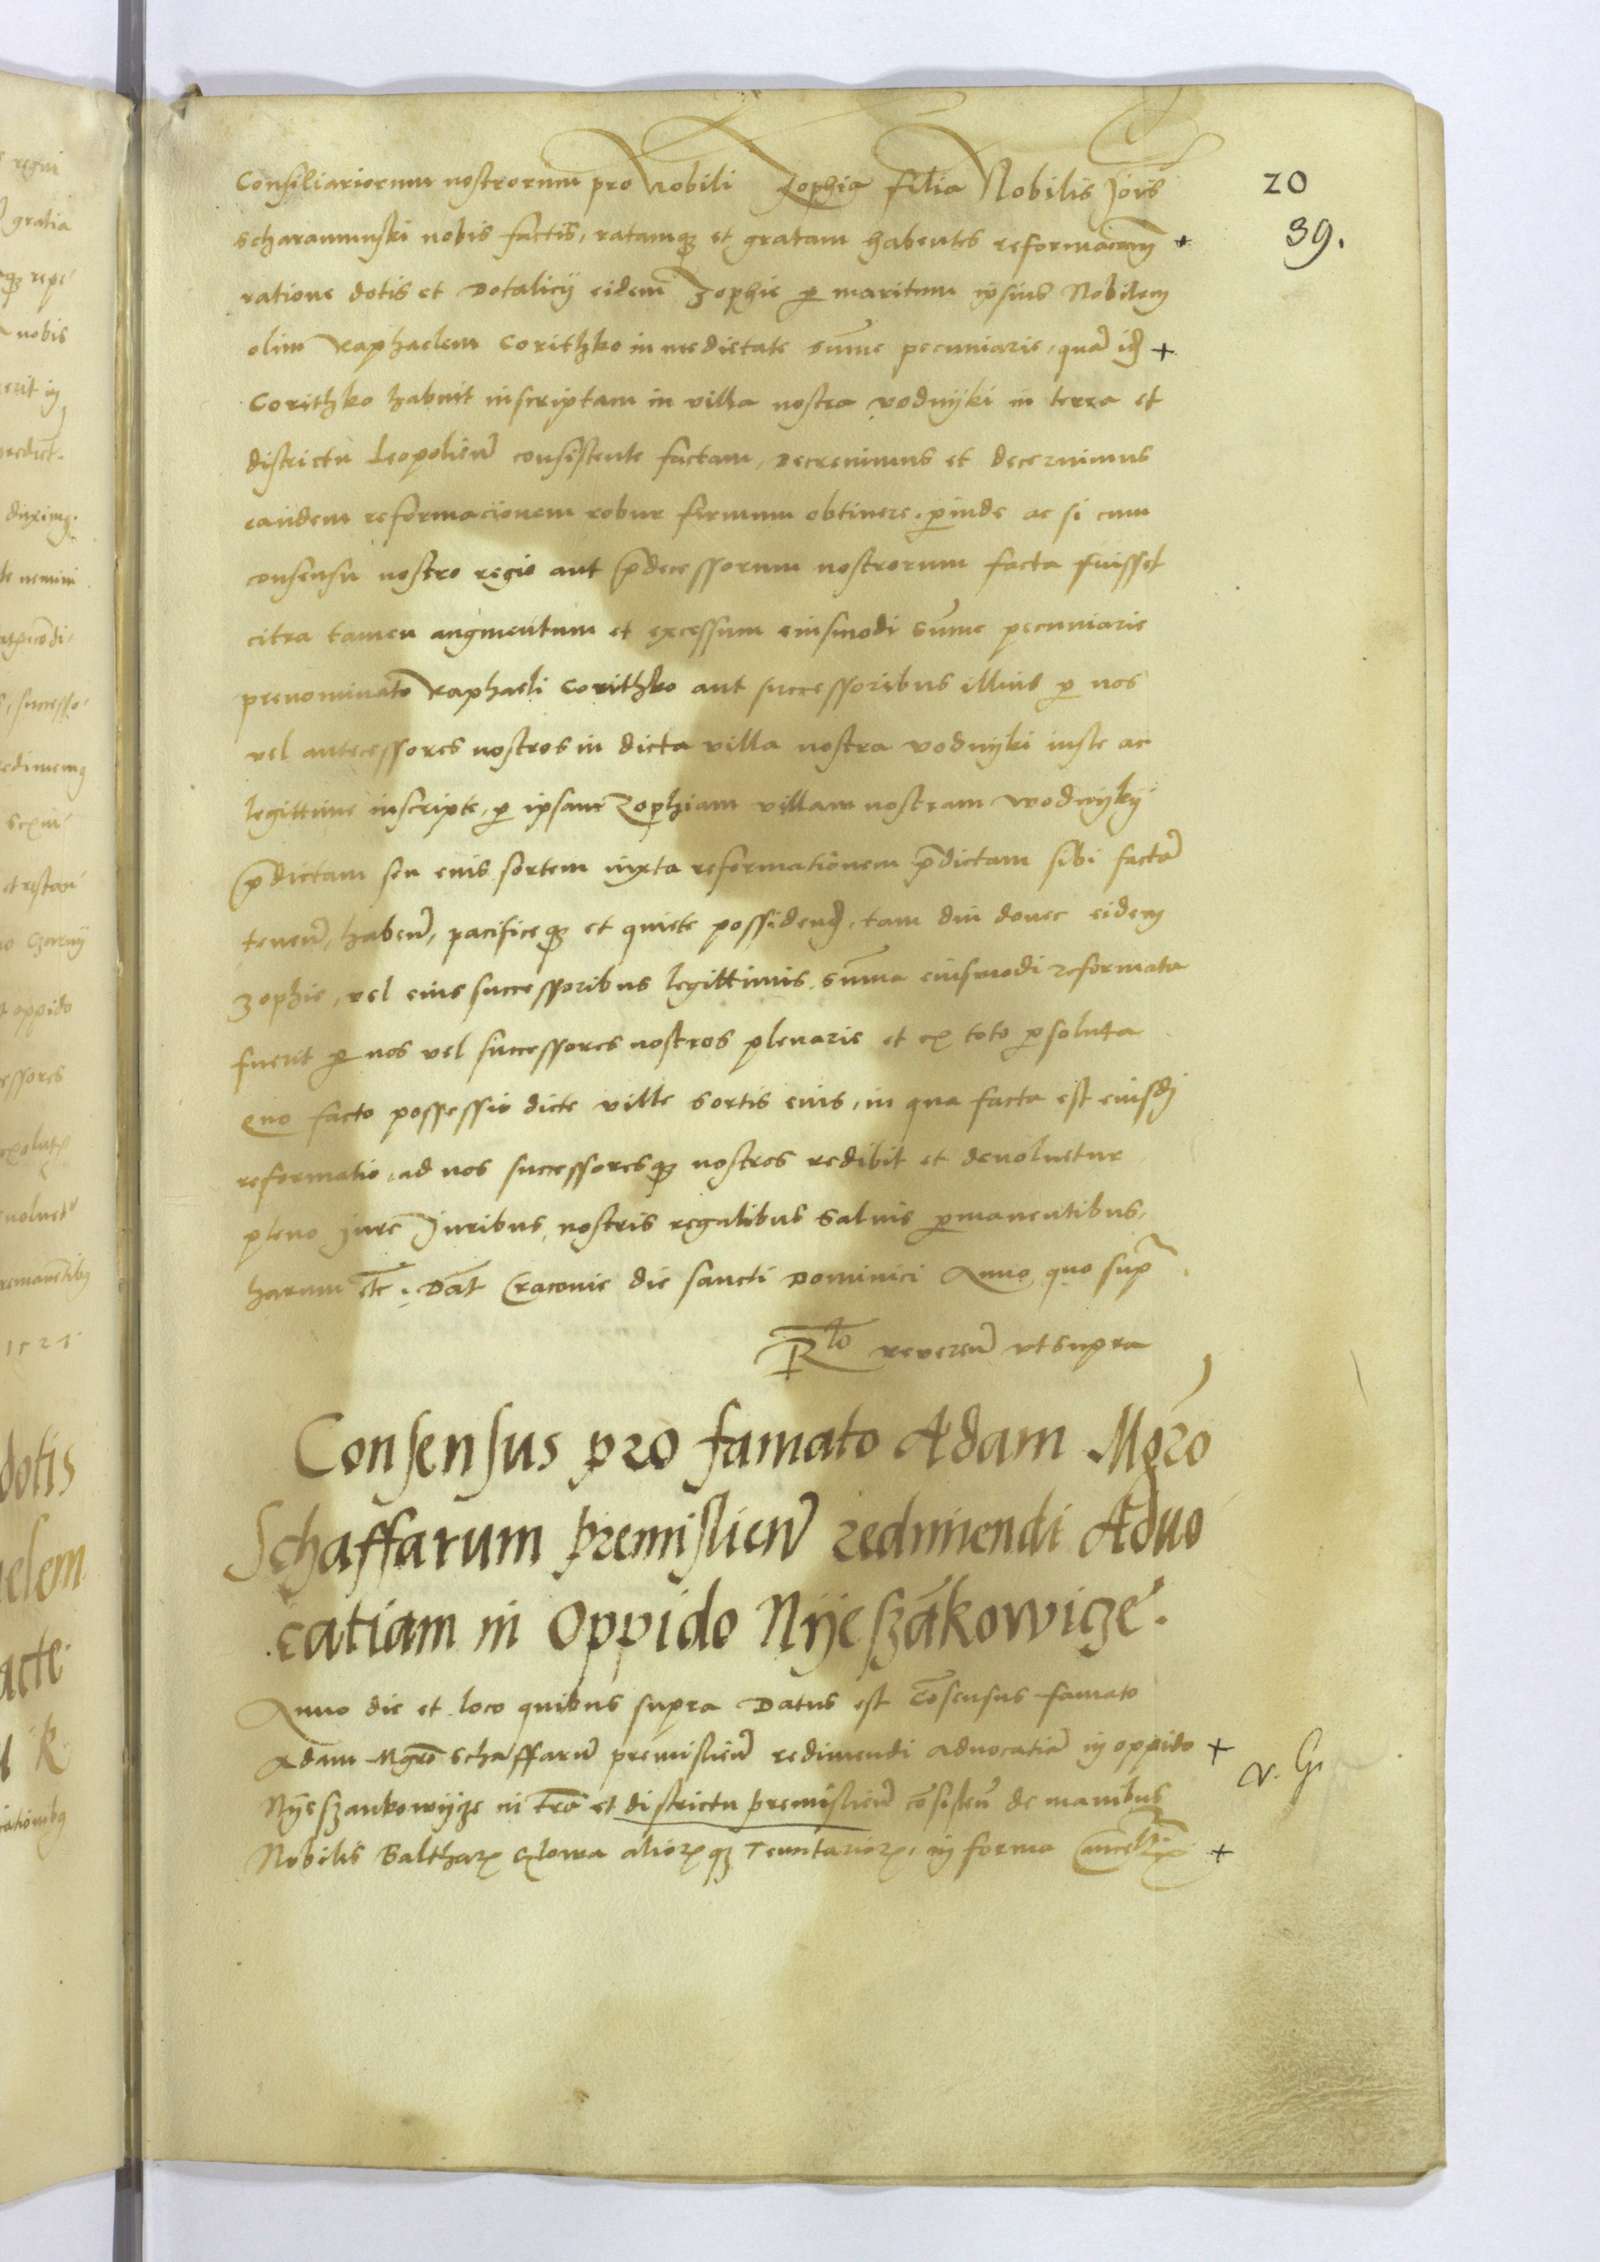 20
39.
Consiliariorum nostrorum pro Nobili Zophia filia Nobilis Joĩs
Scharamunski nobis factis, ratamqȝ et gratam habentes reformacõem +
ratione dotis et Dotalicij eidem Zophie ꝑ maritum ipsius Nobilem
olim Raphaelem Corithko in medietate sũme pecuniarie, quã id +
Corithko habuit inscriptam in villa nostra vodnijki in terra et
districtu Leopolieñ consistente factam, Decrevimus et decernimus
eandem reformacionem robur firmum obtinere, ꝑinde ac si cum
consensu nostro regio aut p̃decessorum nostrorum facta fuisset
citra tamen augmentum et excessum eiusmodi sũme pecuniarie
prenominato Raphaeli Corithko aut successoribus illius ꝑ nos
vel antecessores nostros in dicta villa nostra vodnijki iuste ac
legittime inscripte, ꝑ ipsam Zophiam villam nostram Wodnijkij
p̃dictam seu eius sortem iuxta reformationem p̃dictam sibi factã
teneñ, habeñ, pacificeqȝ et quiete possideñ, tam diu donec eidem
Zophie, vel eius successoribus legittimis sũma eiusmodi reformata
fuerit ꝑ nos vel successores nostros plenarie et ex toto ꝑsoluta
Quo facto possessio dicte ville sortis eius, in qua facta est eiusdj
reformatio, ad nos successoresqȝ nostros redibit et devoluetur
pleno jure Juribus nostris regalibus salvis ꝑmanentibus,
harum etc. Dat Cracovie die sancti Dominici Anno quo supꝛ
Rlo revereñ ut supra
Consensus pro famato Adam Mgro
Schaffarum premislieñ redimendi Advo
catiam in Oppido Nijeszãkowicze.
Anno die et loco quibus supra Datus est Cõsensus famato
Adam Mgrõ Schaffarũ premislieñ redimendi advocatiã in oppido +
Nijeszankowijcze in trã et districtu premislieñ cõsisteñ de manibus
v. G.
Nobilis Balthaꝝ alioꝝqȝ Tentarioꝝ, in forma Cancellꝝ +